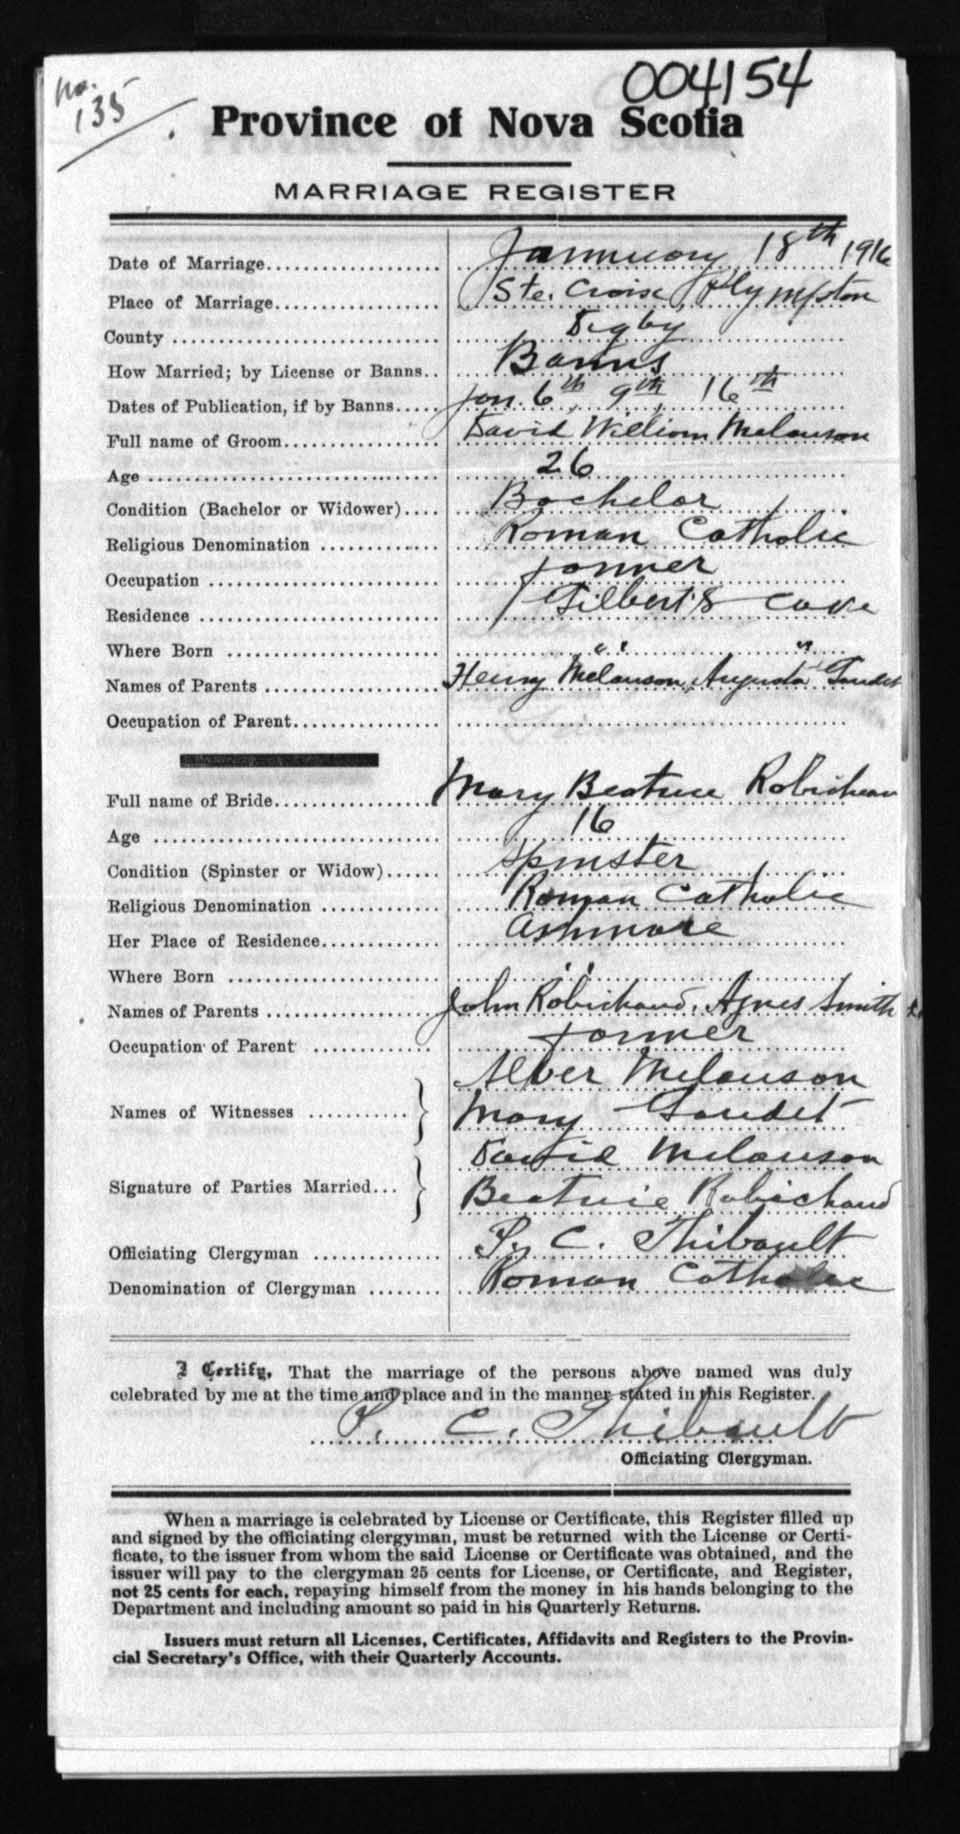 No. 135
004154
Province of Nova Scotia
MARRIAGE REGISTER
Date of Marriage.................. January 18th 1916
Place of Marriage................. Ste. Croix, Plympton
County ........................... Digby
How Married; by License or Banns.. Banns
Dates of Publication, if by Banns..... Jan. 6th, 9th, 16th
Full name of Groom................ David William Melanson
Age .............................. 26
Condition (Bachelor or Widower).... Bachelor
Religious Denomination ............ Roman Catholic
Occupation ....................... Farmer
Residence ........................ Gilbert's Cove
Where Born ....................... " "
Names of Parents ................. Henry Melanson, Augusta Gaudet
Occupation of Parent..............
Full name of Bride................ Mary Beatrice Robicheau
Age .............................. 16
Condition (Spinster or Widow)...... Spinster
Religious Denomination ............ Roman Catholic
Her Place of Residence............ Ashmore
Where Born ....................... "
Names of Parents ................. John Robichaud, Agnes Smith
Occupation of Parent ............. Farmer
Names of Witnesses ........... } Alber Melanson
Mary Gaudet
Signature of Parties Married... } David Melanson
Beatrice Robichaud
Officiating Clergyman ............ P. C. Thibault
Denomination of Clergyman ........ Roman Catholic
I Certify, That the marriage of the persons above named was duly
celebrated by me at the time and place and in the manner stated in this Register.
P. C. Thibault
Officiating Clergyman.
When a marriage is celebrated by License or Certificate, this Register filled up
and signed by the officiating clergyman, must be returned with the License or Certi-
ficate, to the issuer from whom the said License or Certificate was obtained, and the
issuer will pay to the clergyman 25 cents for License, or Certificate, and Register,
not 25 cents for each, repaying himself from the money in his hands belonging to the
Department and including amount so paid in his Quarterly Returns.
Issuers must return all Licenses, Certificates, Affidavits and Registers to the Provin-
cial Secretary's Office, with their Quarterly Accounts.